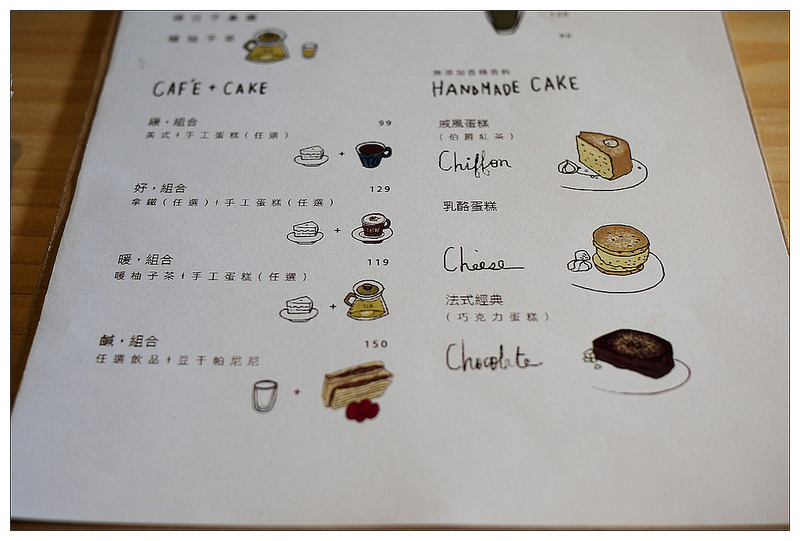 暖柚子茶
CAFÉ + CAKE
緩，組合 99
美式+手工蛋糕(任選)
好，組合 129
拿鐵(任選)+手工蛋糕(任選)
暖，組合 119
暖柚子茶+手工蛋糕(任選)
鹹，組合 150
任選飲品+豆干帕尼尼
無添加香精香料
HANDMADE CAKE
戚風蛋糕
(伯爵紅茶)
Chiffon
乳酪蛋糕
Cheese
法式經典
(巧克力蛋糕)
Chocolate